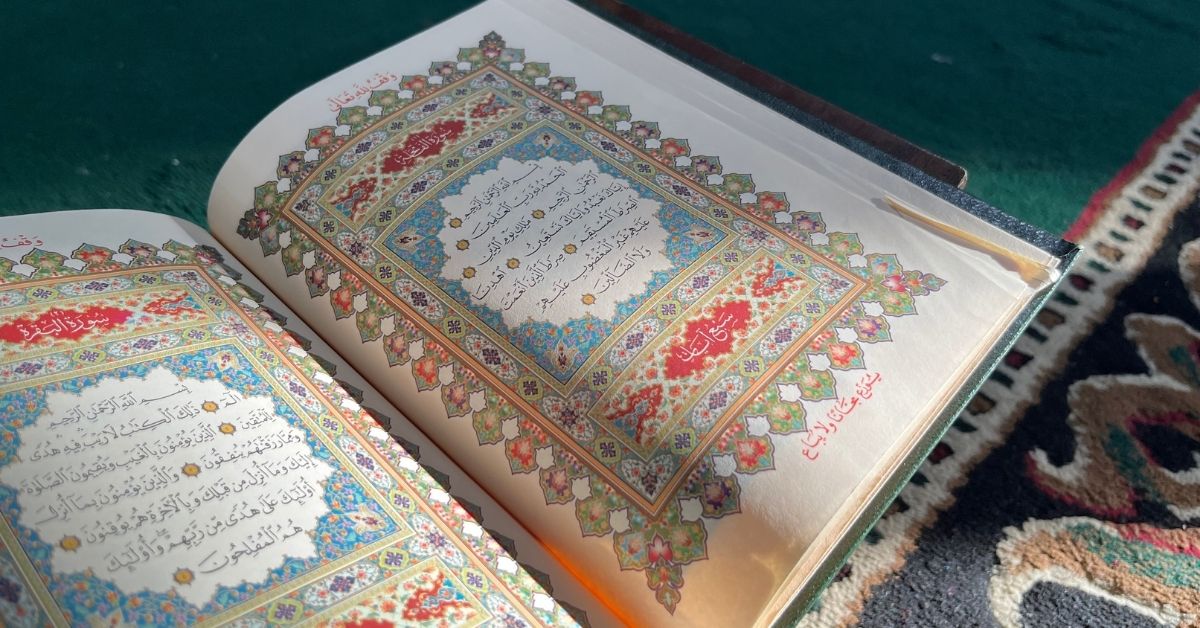 وَقْفٌ لِلَّهِ تَعَالَىٰ
سُورَةُ الْفَاتِحَةِ
بِسْمِ اللَّهِ الرَّحْمَٰنِ الرَّحِيمِ
الْحَمْدُ لِلَّهِ رَبِّ الْعَٰلَمِينَ
الرَّحْمَٰنِ الرَّحِيمِ مَٰلِكِ يَوْمِ الدِّينِ
إِيَّاكَ نَعْبُدُ وَإِيَّاكَ نَسْتَعِينُ اهْدِنَا
الصِّرَٰطَ الْمُسْتَقِيمَ صِرَٰطَ الَّذِينَ أَنْعَمْتَ
عَلَيْهِمْ غَيْرِ الْمَغْضُوبِ عَلَيْهِمْ
وَلَا الضَّالِّينَ
سَبْعُ آيَاتٍ
يُوَزَّعُ مَجَّانًا وَلَا يُبَاعُ
وَقْفٌ
سُورَةُ الْبَقَرَةِ
بِسْمِ اللَّهِ الرَّحْمَٰنِ الرَّحِيمِ
الم ذَٰلِكَ الْكِتَٰبُ لَا رَيْبَ فِيهِ هُدًى
لِلْمُتَّقِينَ الَّذِينَ يُؤْمِنُونَ بِالْغَيْبِ وَيُقِيمُونَ الصَّلَوٰةَ
وَمِمَّا رَزَقْنَٰهُمْ يُنْفِقُونَ وَالَّذِينَ يُؤْمِنُونَ بِمَا أُنْزِلَ
إِلَيْكَ وَمَا أُنْزِلَ مِنْ قَبْلِكَ وَبِالْآخِرَةِ هُمْ يُوقِنُونَ
أُولَٰئِكَ عَلَىٰ هُدًى مِنْ رَبِّهِمْ وَأُولَٰئِكَ
هُمُ الْمُفْلِحُونَ